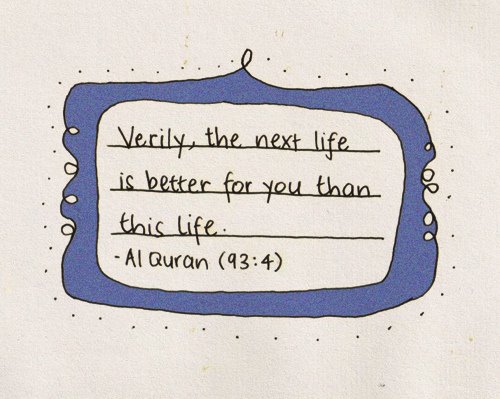 Verily, the next life
is better for you than
this life.
- Al Quran (93:4)